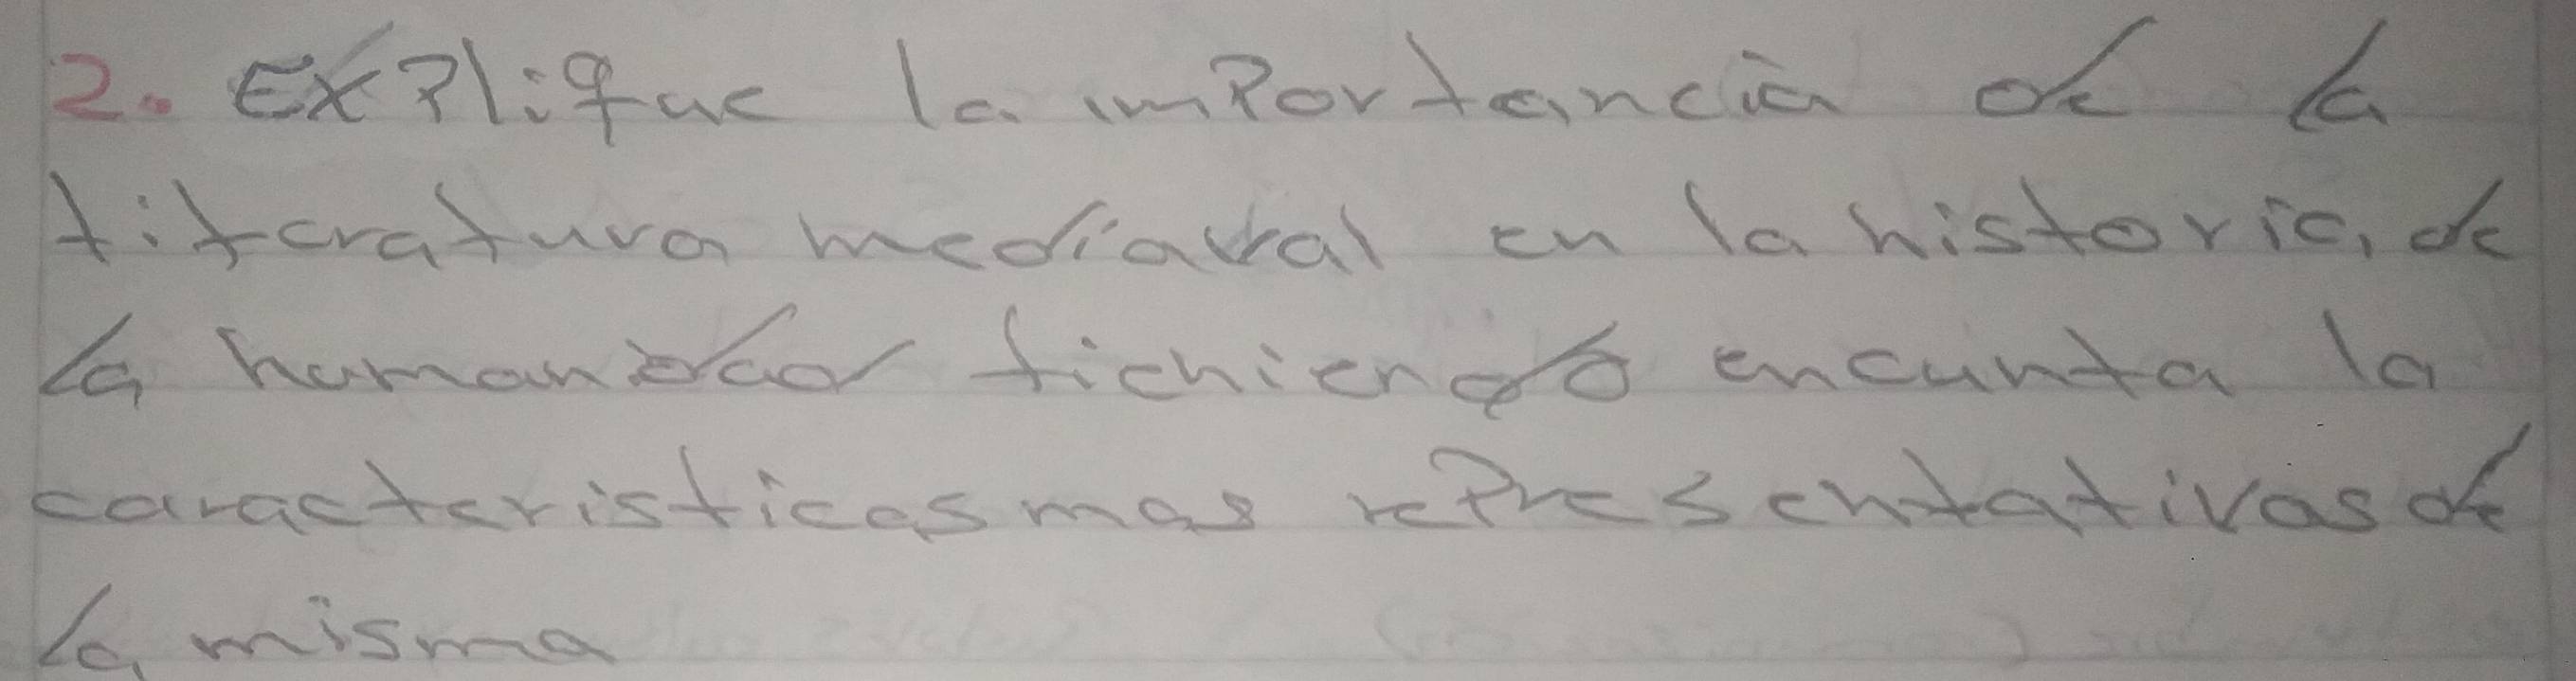 2. EXPlique la imPortancia de la
literatura mediaval en la historia de
la humanidad tichiendo encunta la
caracteristicas mas rePresentativas de
la misma